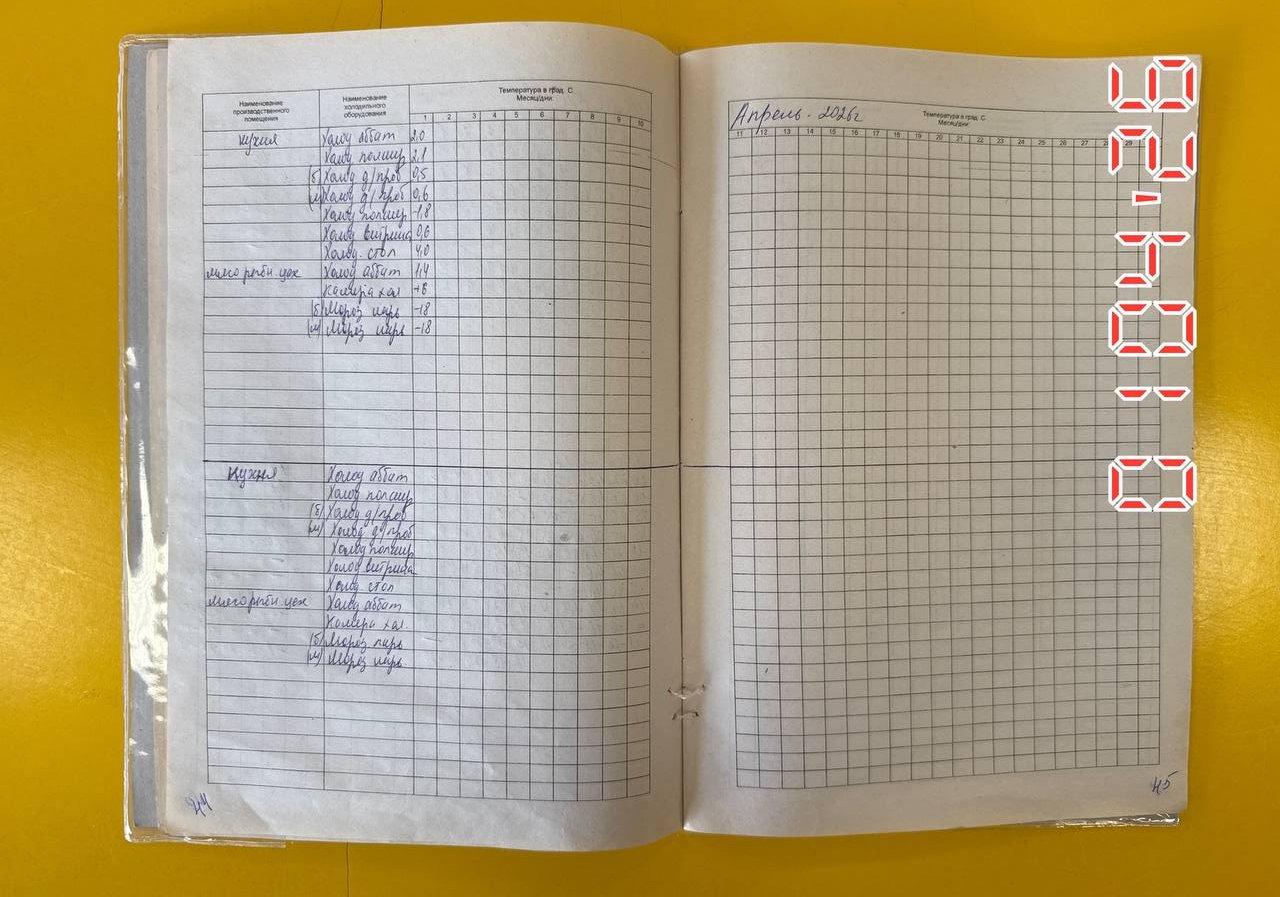 Наименование производственного помещения
Наименование холодильного оборудования
Температура в град. С
Месяц/дни:
1 2 3 4 5 6 7 8 9 10
Кухня Холод аббат 2,0
Холод полаир 2,1
(б) Холод д/проб 0,5
(м) Холод д/проб 0,6
Холод полаир -1,8
Холод витрина 0,6
Холод. стол 4,0
мясо рыбн. цех Холод аббат 1,4
Камера хол +6
(б) Мороз ларь -18
(м) Мороз ларь -18
Кухня Холод аббат
Холод полаир
(б) Холод д/проб
(м) Холод д/проб
Холод полаир
Холод витрина
Холод стол
мясо рыбн. цех Холод аббат
Камера хол.
(б) Мороз ларь
(м) Мороз ларь
44
Апрель - 2026г
Температура в град. С
Месяц/дни:
11 12 13 14 15 16 17 18 19 20 21 22 23 24 25 26 27 28 29
45